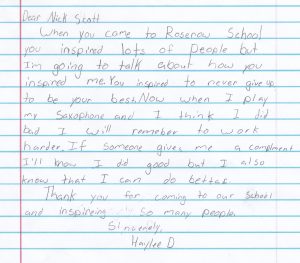 Dear Nick Scott
When you come to Rosenow School
you inspired lots of People but
I'm going to talk about how you
inspired me. You inspired to never give up
to be your best. Now when I play
my Saxophone and I think I did
bad I will remeber to work
harder. If someone gives me a compliment
I'll know I did good but I also
know that I can do better.
Thank you for coming to our School
and inspireing So many people.
Sincerely,
Haylee D